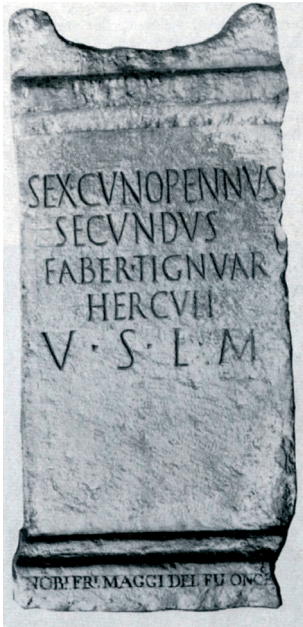 SEX CVNOPENNVS
SECVNDVS
FABER·TIGNVAR
HERCVLI
V · S · L · M
NOB! FR! MAGGI DEL FU ONCE